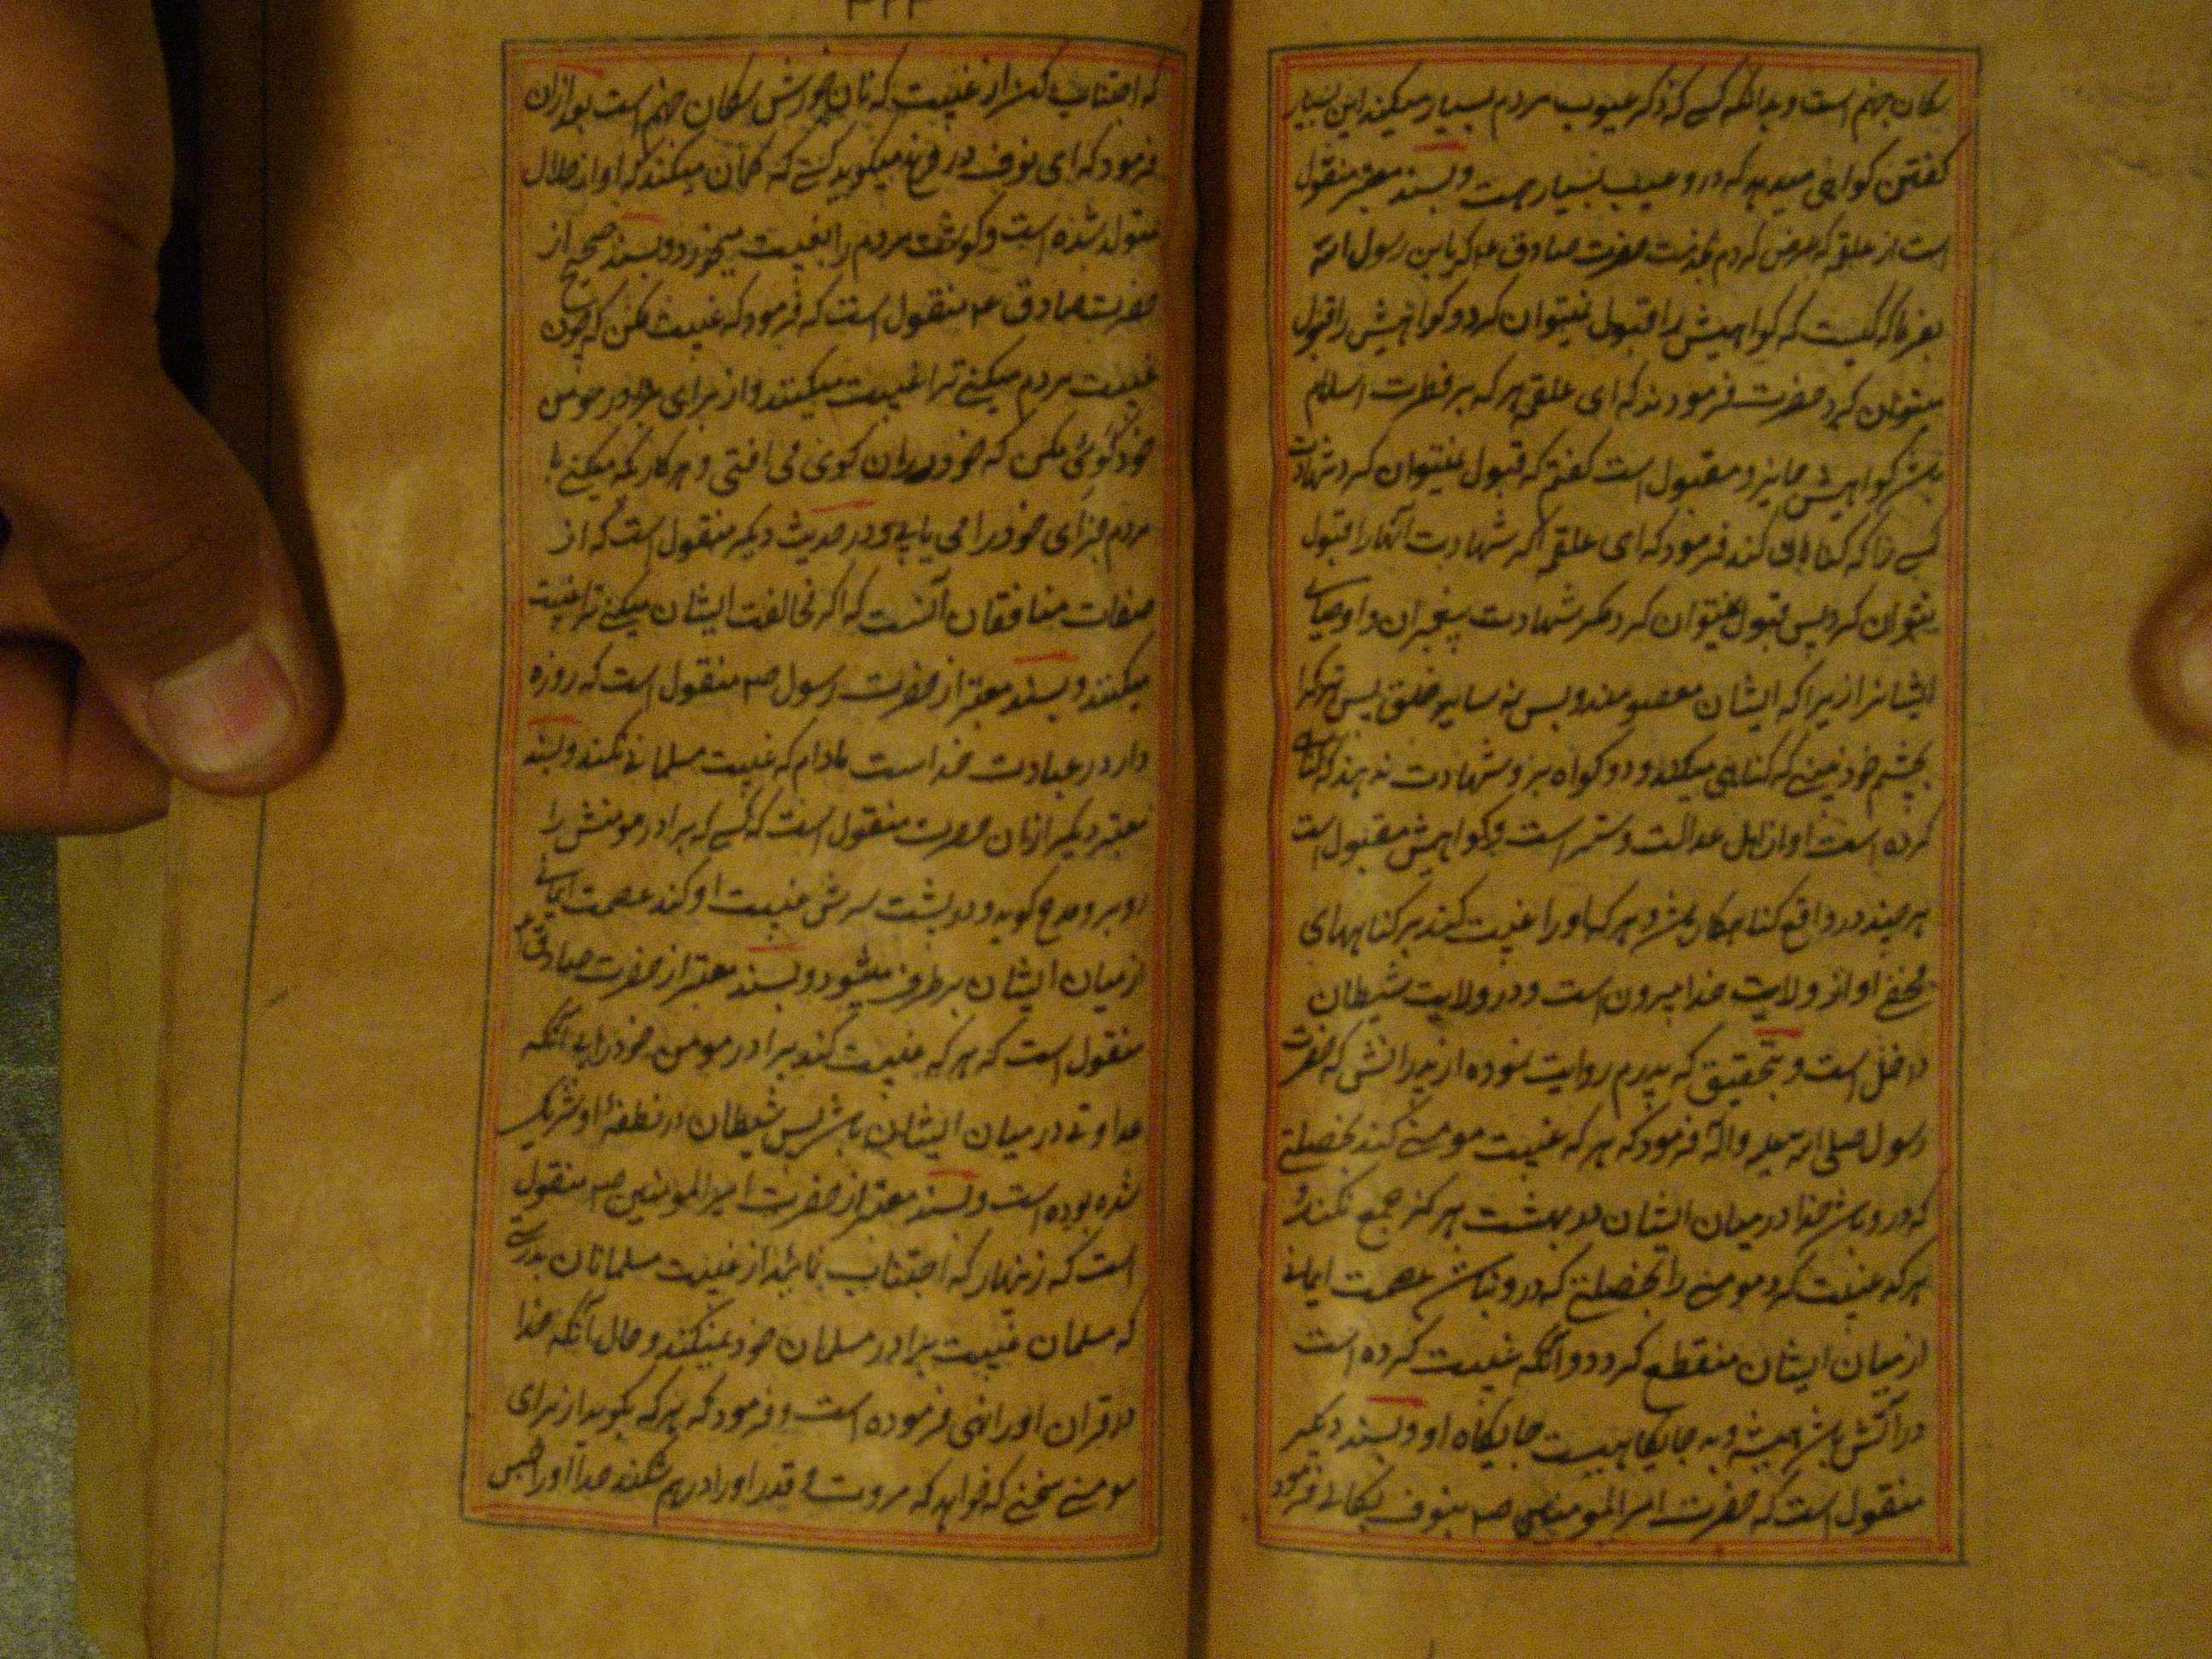 سکان جهنم است و بدانکه کسے که ذکر عیوب مردم بسیار میکند این بسیار
کفتن کواهی میدهد که در و عیب بسیار هست و بسند معتبر منقول
است از علقمه که عرض کردم بخدمت حضرت صادق ع که یا بن رسول الله
بفرما که کیست که کواهیش را قبول نمیتوان کرد و کواهیش را قبول
میتوان کرد حضرت فرمودند که ای علقمه هر که بر فطرت اسلام
باشد کواهیش جایز و مقبول است کفتم که قبول میتوان کرد شهادت
کسے را که کناهان کند فرمود که ای علقمه اکر شهادت آنها را قبول
نتوان کرد پس قبول نمیتوان کرد مکر شهادت پیغمبران و اوصیای
ایشانرا زیرا که ایشان معصومند و بس نه سایر خلق پس هر که را
بچشم خود نبینے که کناهی میکند و دو کواه بر و شهادت ندهند که کناهے
کرده است او از اهل عدالت و ستر است و کواهیش مقبول است
هر چند در واقع کناهکار باشد و هر که او را غیبت کند بر کناههای
مخفے او از ولایت خدا بیرون است و در ولایت شیطان
داخل است و بتحقیق که پدرم روایت نموده از پدرانش که حضرت
رسول صلی الله علیه و آله فرمود که هر که غیبت مومنے کند بخصلتے
که در و باشد خدا در میان ایشان در بهشت هرکز جمع نکند و
هر که غیبت کرد مومنے را بخصلتے که در و نباشد عصمت ایمانے
از میان ایشان منقطع کردد و آنکه غیبت کرده است
در آتش باشد همیشه و بد جایکاهیست جایکاه او و بسند دیکر
منقول است که حضرت امیرالمومنین ص بنوف بکالے فرمود
۳۲۳
که اجتناب کن از غیبت که نان خورش سکان جهنم است بعد ازان
فرمود که ای نوف دروغ میکوید کسے که کمان میکند که او از حلال
متولد شده است و کوشت مردم را بغیبت میخورد و بسند صحیح از
حضرت صادق ع منقول است که فرمود که غیبت مکن که چون
غیبت مردم میکنے ترا غیبت میکنند و از برای برادر مومن
خود کوی مکن که خود دران کوی می افتی و هر کاریکه میکنے با
مردم جزای خود را می یابے و در حدیث دیکر منقول است که از
صفات منافقان آنست که اکر مخالفت ایشان میکنے ترا غیبت
میکنند و بسند معتبر از حضرت رسول ص منقول است که روزه
دار در عبادت خداست مادام که غیبت مسلمانے نکند و بسند
معتبر دیکر از ان حضرت منقول است که کسے که برادر مومنش را
روبرو مدح کوید و در پشت سرش غیبت او کند عصمت ایمانے
از میان ایشان بر طرف میشود و بسند معتبر از حضرت صادق ع
منقول است که هر که غیبت کند برادر مومن خود را بے آنکه
عداوتے در میان ایشان باشد پس شیطان در نطفه او شریک
شده بوده است و بسند معتبر از حضرت امیرالمومنین ص منقول
است که زینهار که اجتناب نمائید از غیبت مسلمانان بدرستے
که مسلمان غیبت برادر مسلمان خود نمیکند و حال آنکه خدا
در قران او را نهی فرموده است و فرمود که هر که بکوید از برای
مومنے سخنے که خواهد که مروت و قدر او را درهم شکند خدا او را حبس